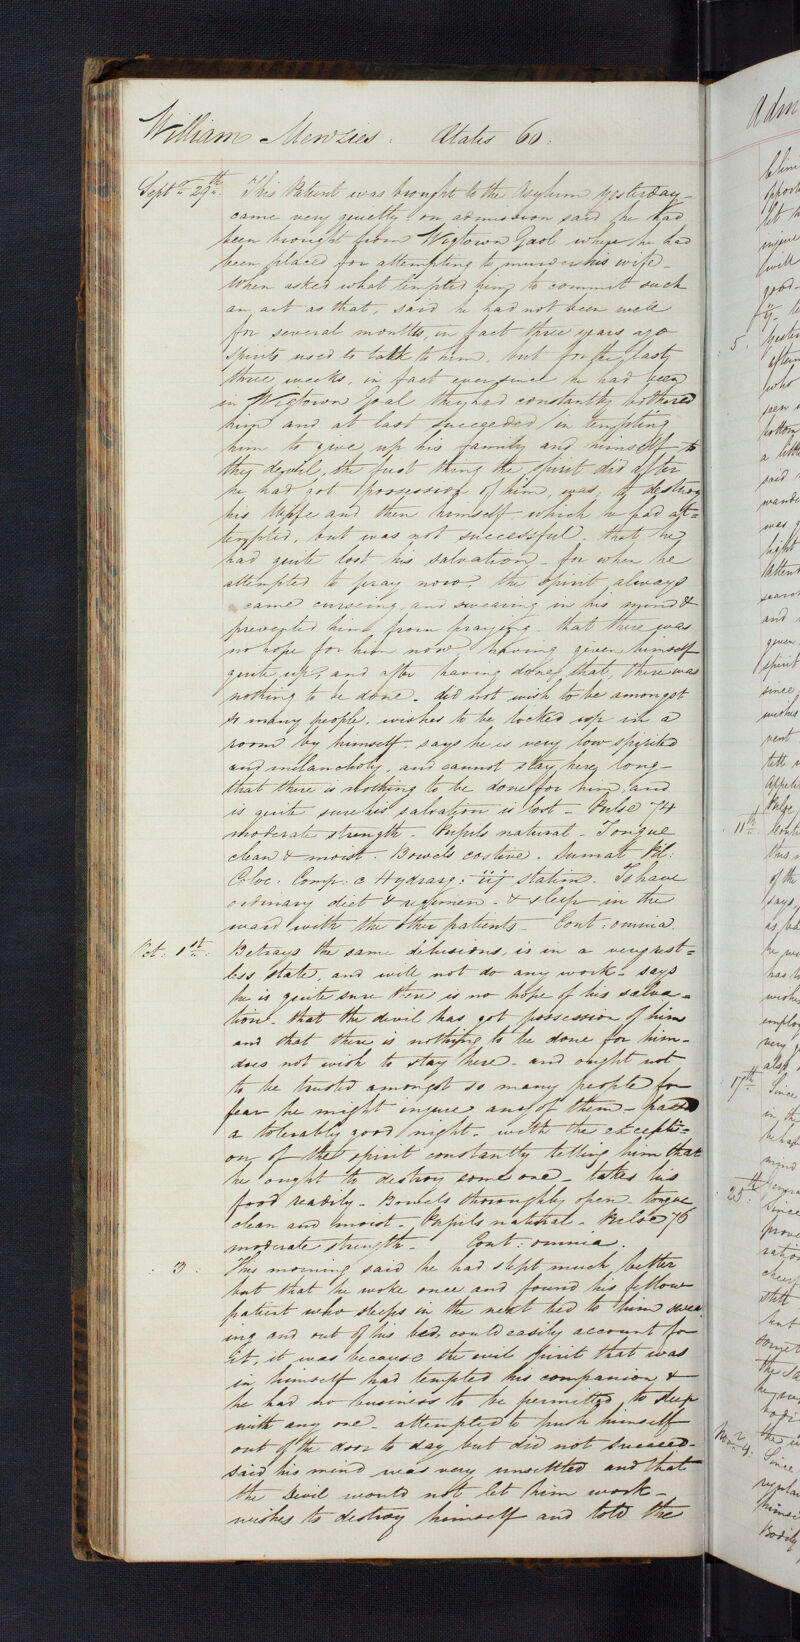 William Menzies. Ætatis 60.
Septr 29th. This Patient was brought to the Asylum yesterday -
came very quietly - on admission said he had
been brought from Wigtown Gaol where he had
been placed for attempting to murder his wife -
When asked what tempted him to commit such
an act as that, said he had not been well
for several months, in fact three years ago
spirits used to talk to him, but for the last
three weeks, in fact ever since he had been
in Wigtown Goal they had constantly bothered
him and at last succeeded in tempting
him to give up his family and himself to
the devil, the first thing the spirit did after
he had got possession of him, was, to destroy
his Wife and then himself which he had at=
tempted, but was not successful - that he
had quite lost his salvation - for when he
attempted to pray now, the spirit always
came cursing and swearing in his mind &
prevented him from praying - that there was
no hope for him now having given himself
quite up, and after having done that, there was
nothing to be done - did not wish to be amongst
so many people, wishes to be locked up in a
room by himself, says he is very low spirited
and melancholy, and cannot stay here long -
that there is nothing to be done for him, and
is quite sure his salvation is lost - Pulse 74
moderate strength - Pupils natural - Tongue
clean & moist. Bowels costive. Sumat Pil:
Coloc. Comp: c Hydrarg: iij statim. To have
ordinary diet & regimen - & sleep in the
ward with the other patients - Cont: omnia.
Oct: 1st. Betrays the same delusions, is in a very rest=
less state, and will not do any work - says
he is quite sure there is no hope of his salva=
tion - that the devil has got possession of him
and that there is nothing to be done for him -
does not wish to stay here - and ought not
to be trusted amongst so many people for
fear he might injure any of them - passed
a tolerably good night - with the excepti=
on of the spirit constantly telling him that
he ought to destroy some one - takes his
food readily - Bowels thoroughly open - tongue
clean and moist - Pupils natural - Pulse 76
moderate strength - Cont: omnia.
3. This morning said he had slept much better
but that he woke once and found his fellow
patient who sleeps in the next bed to him swea
ing and out of his bed, could easily account for
it, it was because the evil spirit that was
in himself had tempted his companion &
he had no business to be permitted to sleep
with any one - attempted to push himself
out of the door to day but did not succeed -
said his mind was very unsettled and that
the Devil would not let him work -
wishes to destroy himself and told the